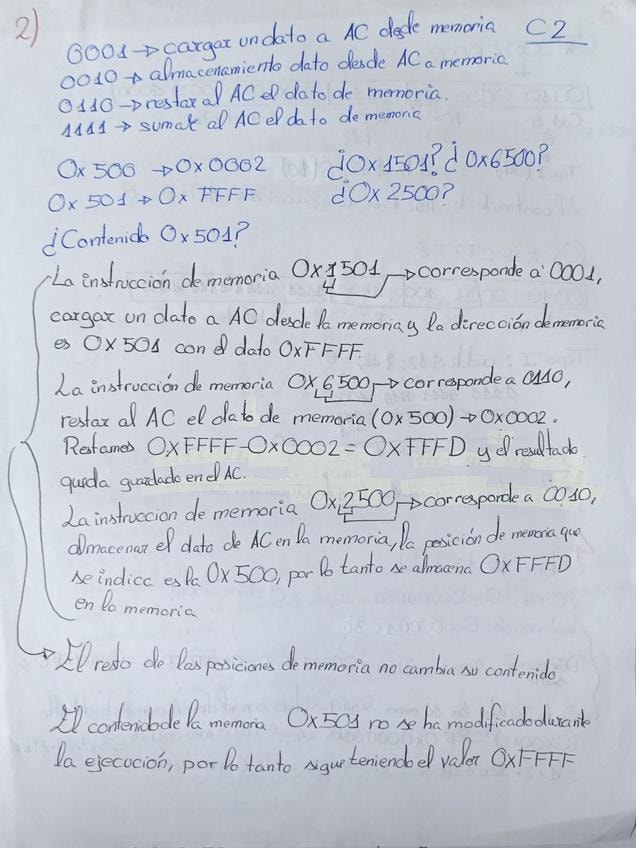 2)
0001 → cargar un dato a AC desde memoria C2
0010 → almacenamiento dato desde AC a memoria
0110 → restar al AC el dato de memoria.
1111 → sumar al AC el dato de memoria
0x500 → 0x0002 ¿0x1501? ¿0x6500?
0x501 → 0xFFFF ¿0x2500?
¿Contenido 0x501?
La instrucción de memoria 0x1501 → corresponde a 0001,
cargar un dato a AC desde la memoria y la dirección de memoria
es 0x501 con el dato 0xFFFF.
La instrucción de memoria 0x6500 → corresponde a 0110,
restar al AC el dato de memoria (0x500) → 0x0002.
Restamos 0xFFFF-0x0002 = 0xFFFD y el resultado
queda guardado en el AC.
La instruccion de memoria 0x2500 → corresponde a 0010,
almacenar el dato de AC en la memoria, la posición de memoria que
se indica es la 0x500, por lo tanto se almacena 0xFFFD
en la memoria
→ El resto de las posiciones de memoria no cambia su contenido.
El contenido de la memoria 0x501 no se ha modificado durante
la ejecución, por lo tanto sigue teniendo el valor 0xFFFF